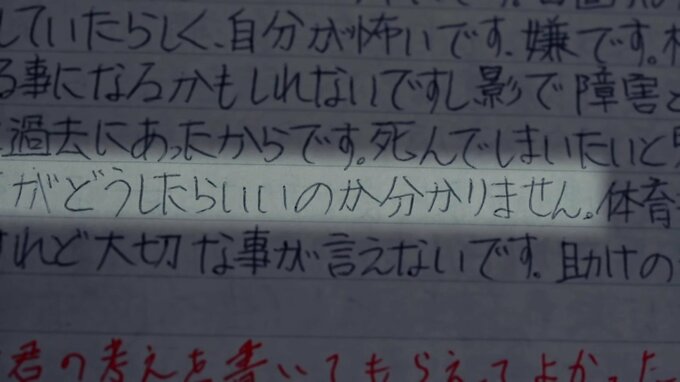 していたらしく、自分が怖いです、嫌です。
る事になるかもしれないですし影で障害
過去にあったからです。死んでしまいたいと
がどうしたらいいのか分かりません。体育
れど大切な事が言えないです。助けの
君の考えを書いてもらえてよかった